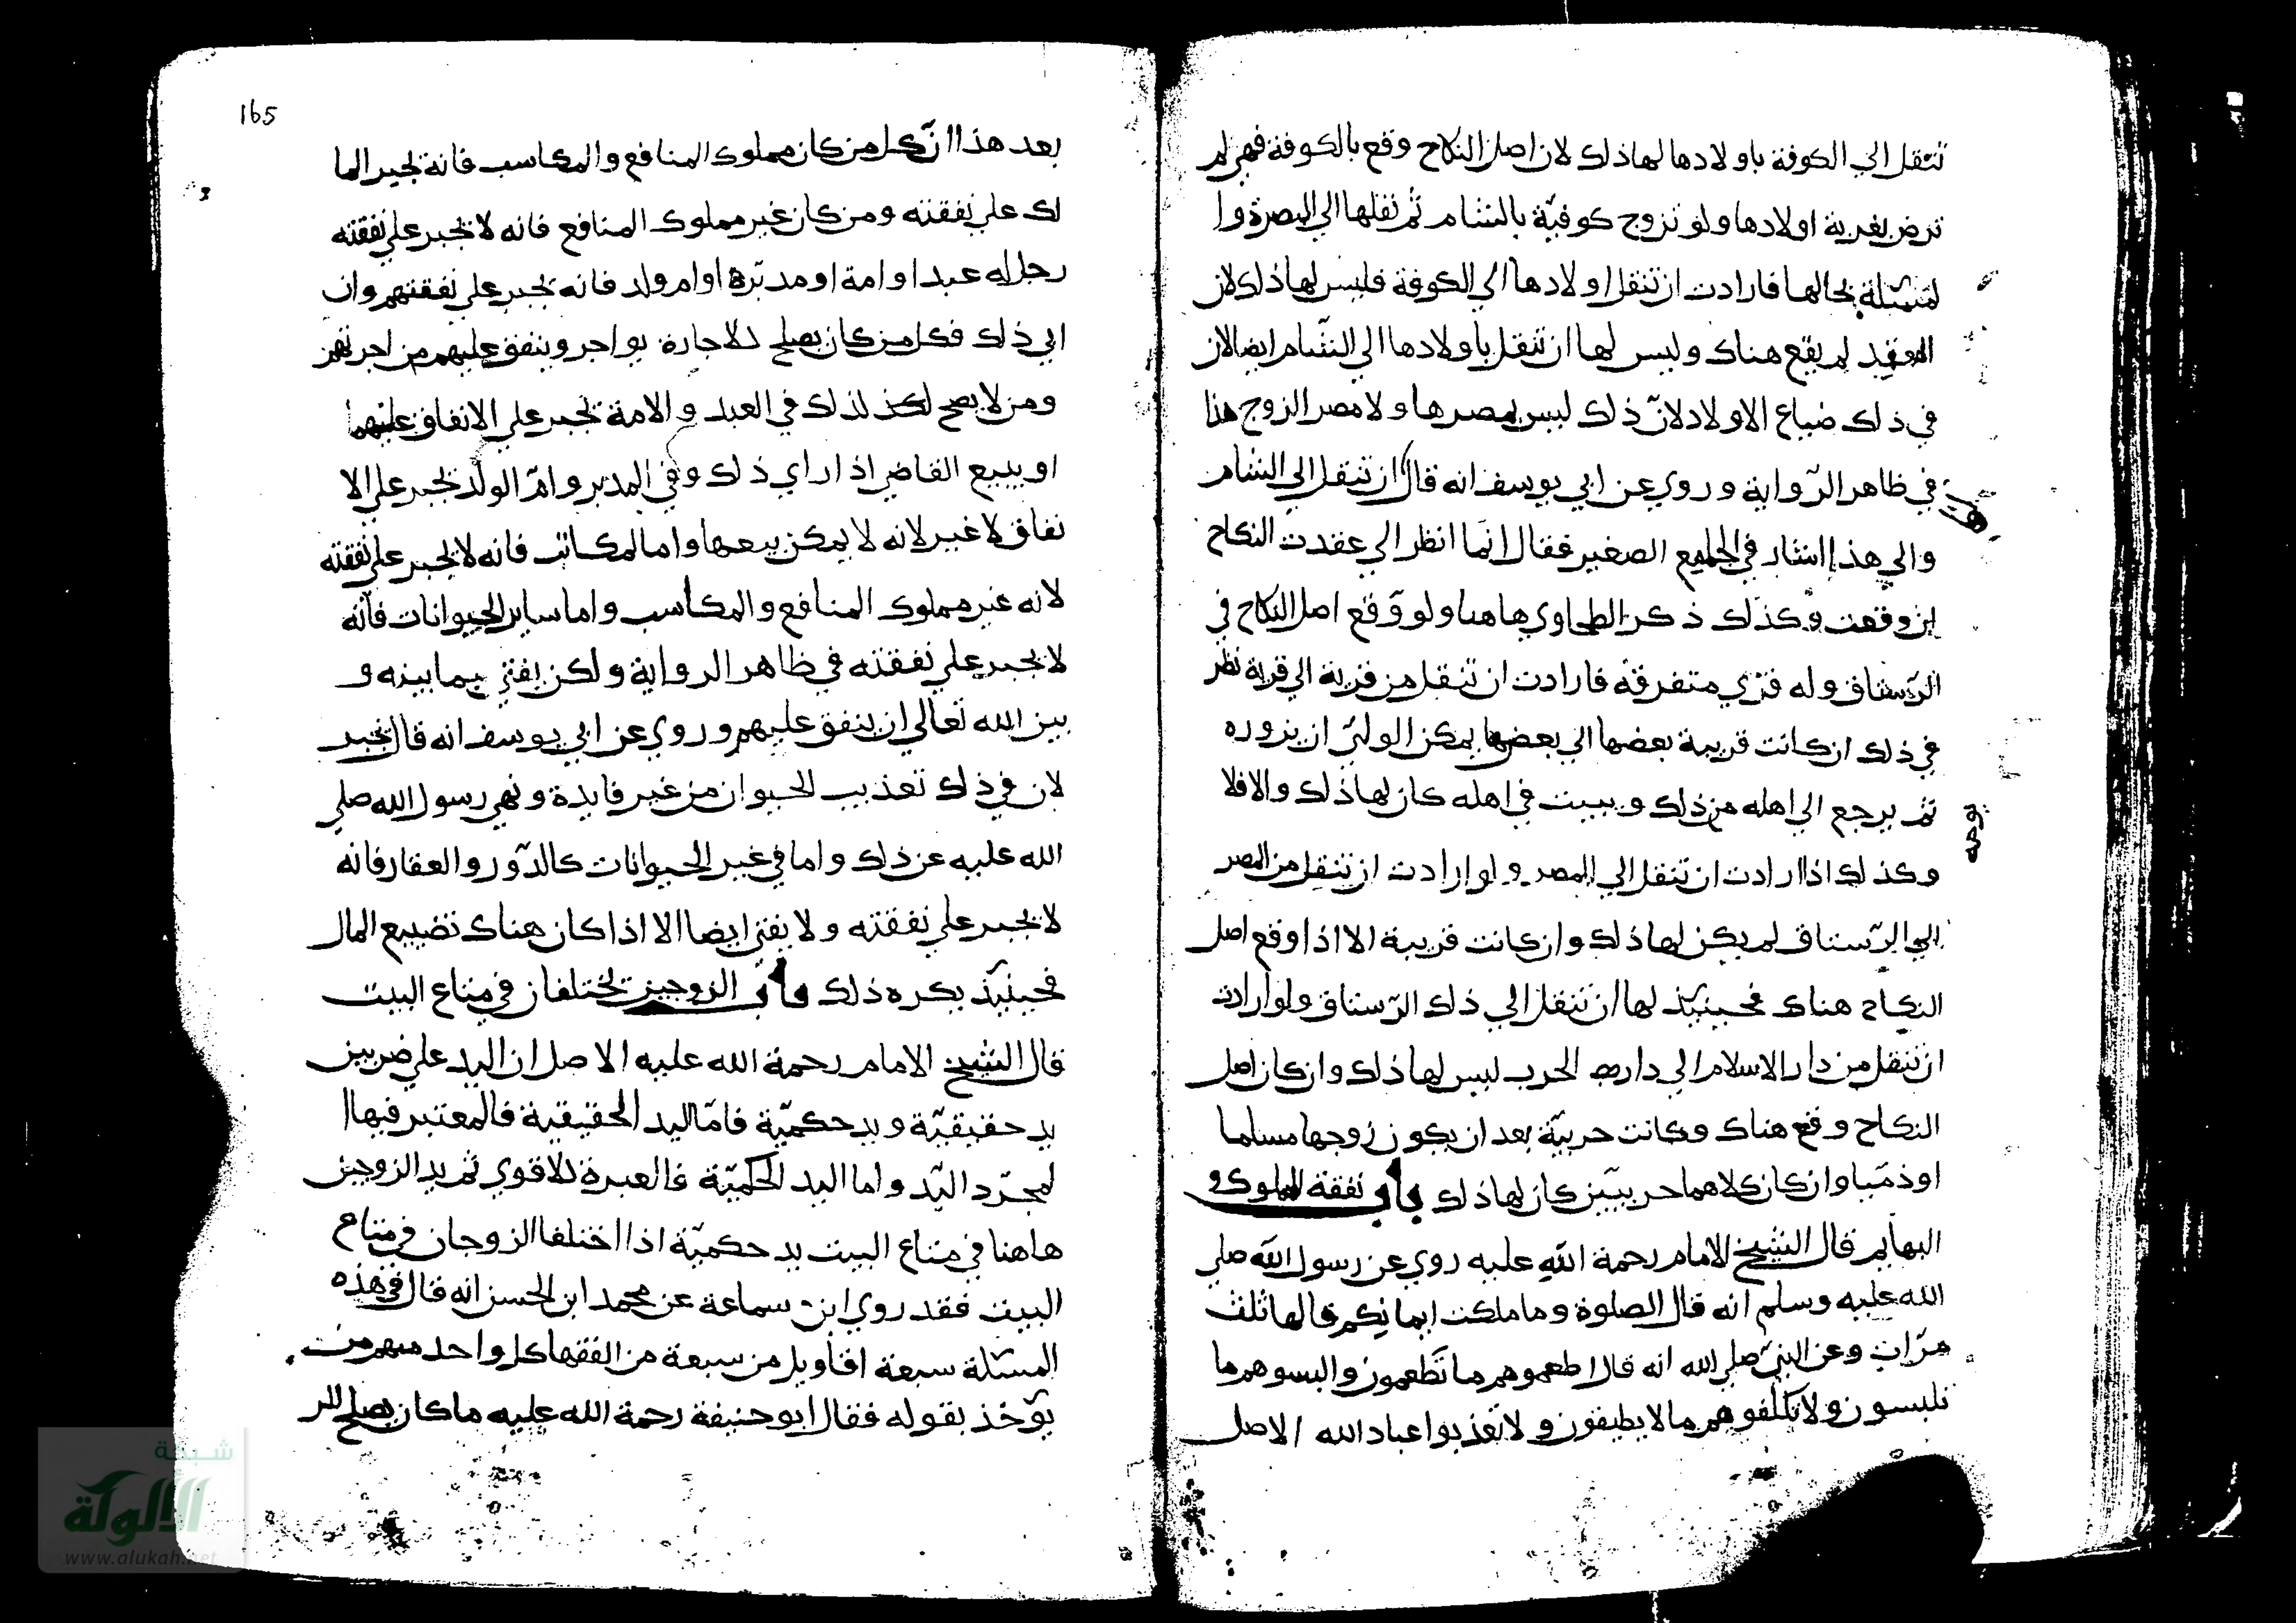 تنتقل الي الكوفة باولادها لها ذلك لان اصل النكاح وقع بالكوفة فهي لم
ترض بغربة اولادها ولو تزوج كوفيّة بالشام ثم نقلها الي البصرة وا
لمسئلة بحالها فارادت ان تنقل اولادها الي الكوفة فليس لها ذلك لان
العقد لم يقع هناك وليس لها ان تنقل باولادها الي الشّام ايضا لان
في ذلك ضياع الاولاد لانّ ذلك ليس بمصرها ولا مصر الزوج هذا
في ظاهر الرّواية وروي عن ابي يوسف انه قال ان تنقل الي الشام
والي هذا اشار في الجامع الصغير فقال انّما انظر الي عقدت النكاح
اين وقعت وكذلك ذكر الطحاوي هاهنا ولو وقع اصل النكاح في
الرّستاق وله قري متفرقة فارادت ان تنقل من قرية الي قرية نظر
في ذلك ان كانت قريبة بعضها الي بعضها يمكن الولي ان يزوره
ثم يرجع الي اهله من ذلك ويبيت في اهله كان لها ذلك والا فلا
يومه
وكذلك اذا ارادت ان تنقل الي المصر ولو ارادت ان تنقل من المصر
الي الرّستاق لم يكن لها ذلك وان كانت قريبة الا اذا وقع اصل
النكاح هناك فحينيذ لها ان تنقل الي ذلك الرّستاق ولو ارادت
ان تنقل من دار الاسلام الي دار الحرب ليس لها ذلك وان كان اصل
النكاح وقع هناك وكانت حربيّة بعد ان يكون زوجها مسلما
او ذمّيا وان كان كلاهما حربيّين كان لها ذلك باب نفقة المملوك و
البهايم قال الشيخ الامام رحمة الله عليه روي عن رسول الله صلي
الله عليه وسلم انه قال الصلوة وما ملكت ايمانكم قالها ثلث
مرّات وعن النبيّ صلي الله انه قال اطعموهم ما تطعمون والبسوهم ما
تلبسون ولا تكلّفوهم ما لا يطيقون ولا تعذبوا عباد الله الاصل
165
بعد هذا انّ كل من كان مملوك المنافع والمكاسب فانه يجبر الما
لك علي نفقته ومن كان غير مملوك المنافع فانه لا يجبر علي نفقته
رجل له عبد او امة او مدبّرة او ام ولد فانه يجبر علي نفقتهم وان
ابي ذلك فكل من كان يصلح للاجارة يواجر وينفق عليهم من اجرتهم
ومن لا يصح لكذلك في العبد والامة يجبر علي الانفاق عليهما
او يبيع القاضي اذا راي ذلك وفي المدبر وامّ الولد يجبر علي الا
نفاق لا غير لانه لا يمكن بيعها واما المكاتب فانه لا يجبر علي نفقته
لانه غير مملوك المنافع والمكاسب واما ساير الحيوانات فانّه
لا يجبر علي نفقته في ظاهر الرواية ولكن يفتي بما بينه و
بين الله تعالي ان ينفق عليهم وروي عن ابي يوسف انه قال يجبر
لان في ذلك تعذيب الحيوان من غير فايدة ونهي رسول الله صلي
الله عليه عن ذلك واما في غير الحيوانات كالدّور والعقار فانه
لا يجبر علي نفقته ولا يفتي ايضا الا اذا كان هناك تضييع المال
فحينيذ يكره ذلك باب الزوجين يختلفان في متاع البيت
قال الشيخ الامام رحمة الله عليه الاصل ان اليد علي ضربين
يد حقيقيّة ويد حكميّة فامّا اليد الحقيقية فالمعتبر فيها ا
لمجرّد اليّد واما اليد الحكميّة فالعبرة للاقوي ثم يد الزوجين
هاهنا في متاع البيت يد حكميّة اذا اختلفا الزوجان في متاع
البيت فقد روي ابن سماعة عن محمد ابن الحسن انه قال في هذه
المسئلة سبعة اقاويل من سبعة من الفقها كل واحد منهم من
يوّخذ بقوله فقال ابو حنيفة رحمة الله عليه ما كان يصلح للر
شبكة
الألوكة
www.alukah.net